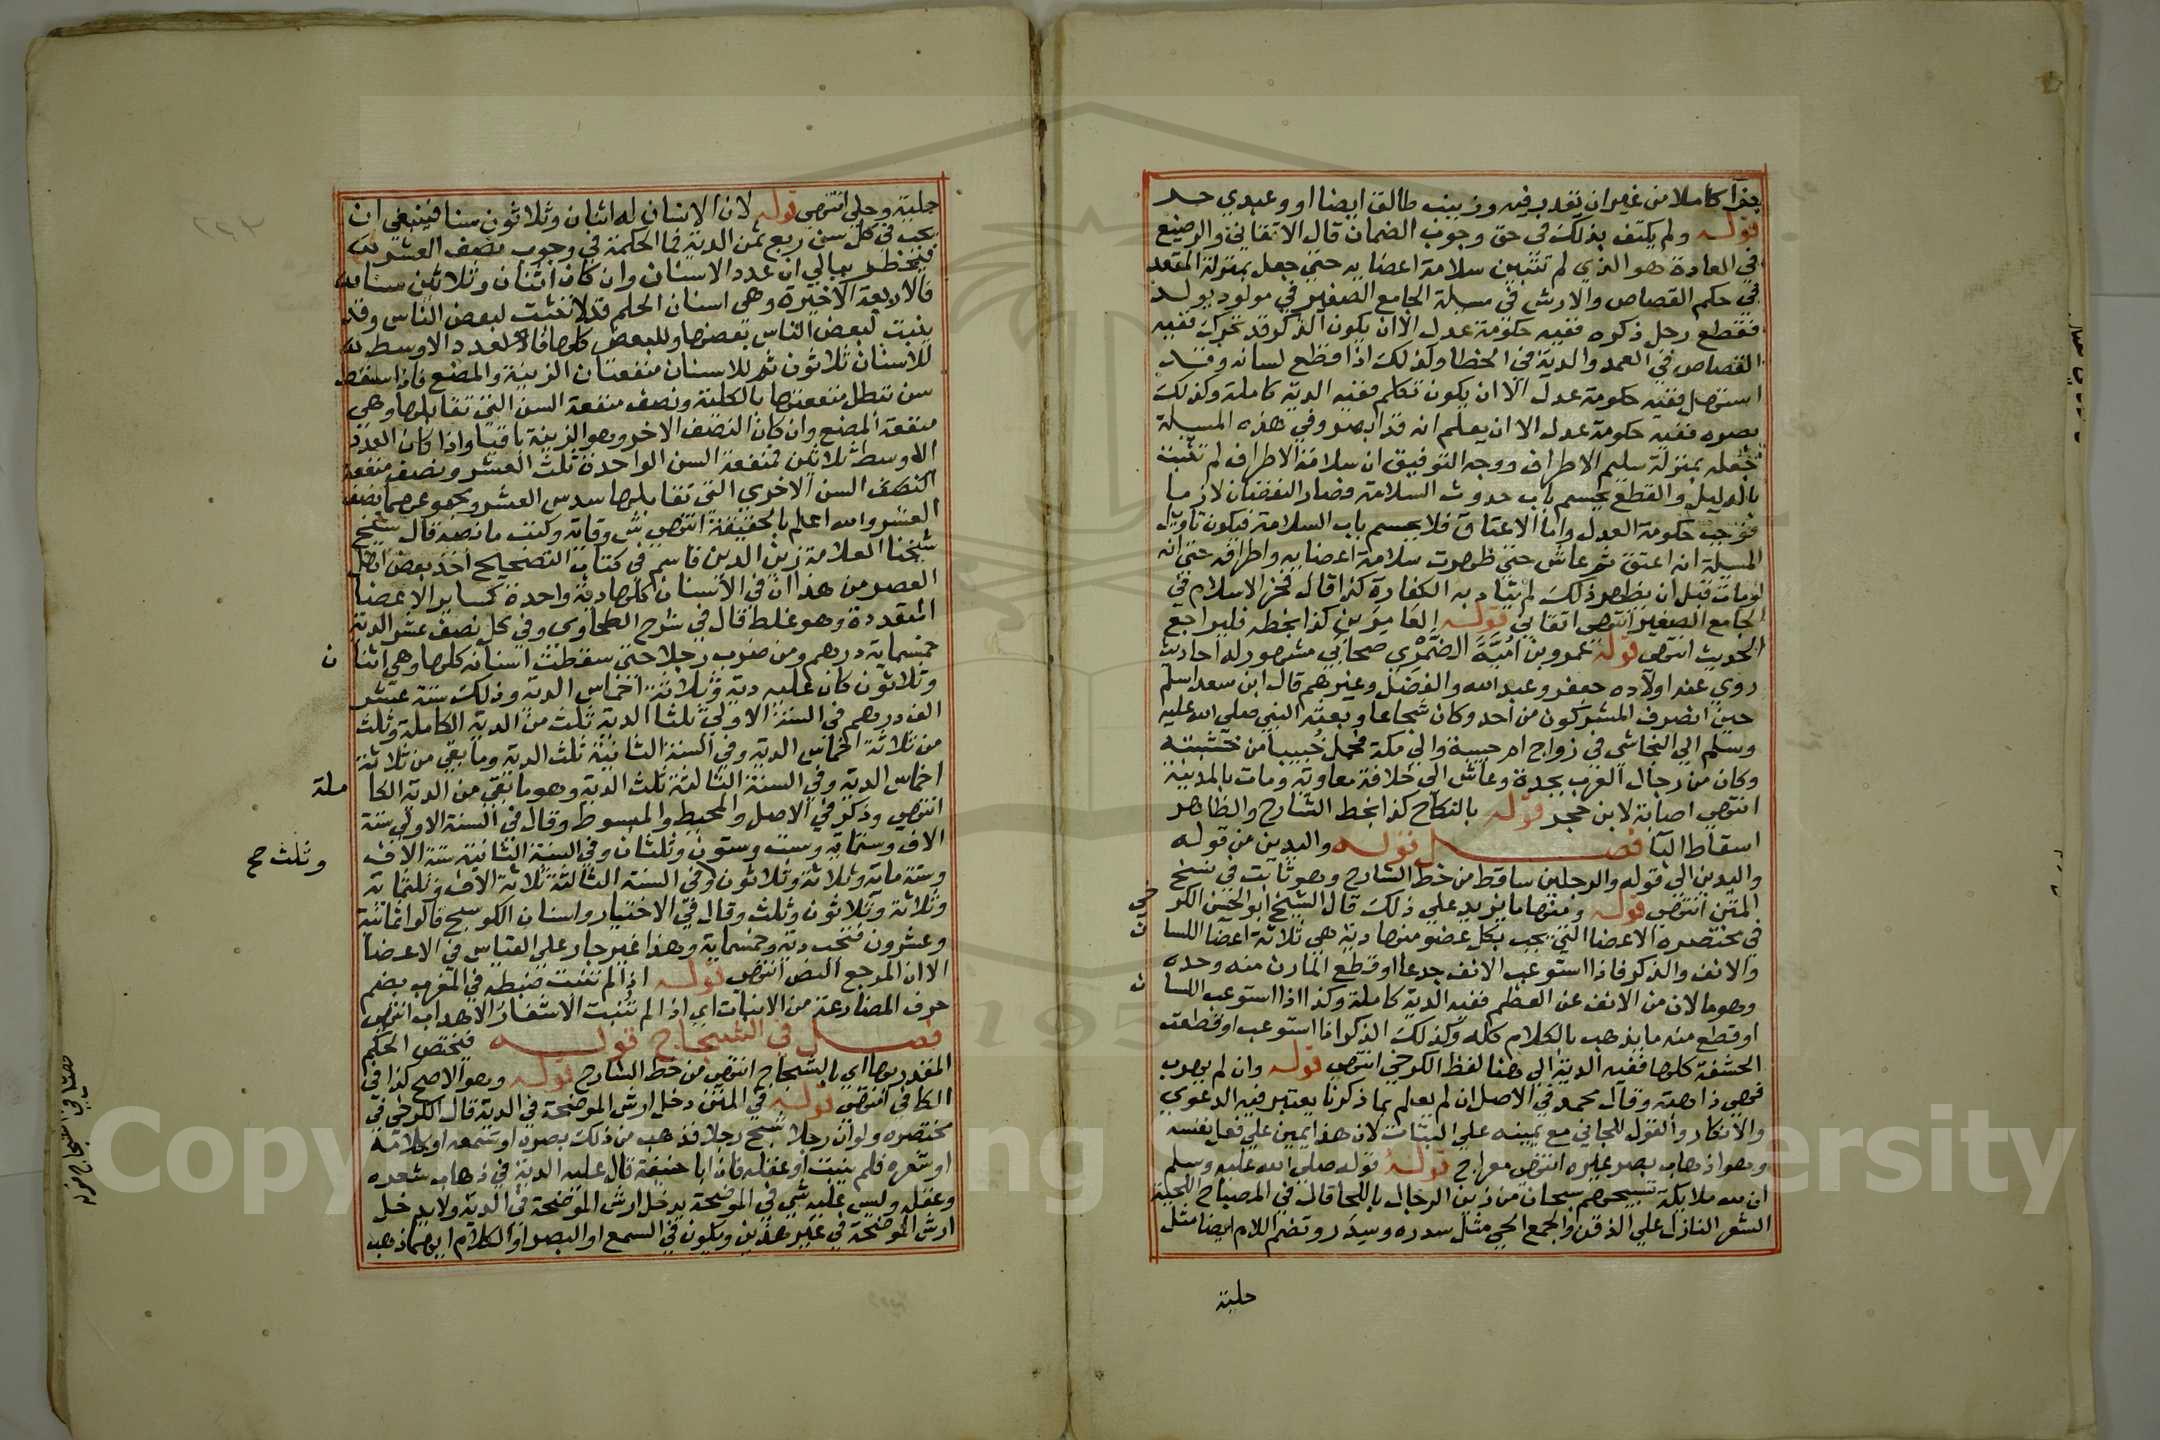 جزآ كاملا من غير ان يقدر فيه وزينب طالق ايضا او وعبدي حر
قوله ولم يكتف بذلك في حق وجوب الضمان قال الاتقاني والرضيع
في العادة هو الذي لم تتبين سلامة اعضايه حتى جعل بمنزلة المقعد
في حكم القصاص والارش في مسيلة الجامع الصغير في مولود يولد
فقطع رجل ذكره ففيه حكومة عدل الا ان يكون الذكر قد تحرك ففيه
القصاص في العمد والدية في الخطا وكذلك اذا قطع لسانه وقد
استهل ففيه حكومة عدل الا ان يكون تكلم ففيه الدية كاملة وكذلك
بصره ففيه حكومة عدل الا ان يعلم انه قد ابصر وفي هذه المسيلة
جعله بمنزلة سليم الاطراف ووجه التوفيق ان سلامة الاطراف لم تثبت
بالدليل والقطع يحسم باب حدوث السلامة فصار النقصان لازما
فوجب حكومة العدل واما الاعتاق فلا يحسم باب السلامة فيكون تاويل
المسيلة انه اعتق ثم عاش حتى ظهرت سلامة اعضايه واطرافه حتى انه
لو مات قبل ان يظهر ذلك لم يتاد به الكفارة كذا قال فخر الاسلام في
الجامع الصغير انتهى اتقاني قوله العامرين كذا بخطه فليراجع
الحديث انتهى قوله عمرو بن امية الضمري صحابي مشهور له احاديث
روى عنه اولاده جعفر وعبد الله والفضل وغيرهم قال ابن سعد اسلم
حين انصرف المشركون من احد وكان شجاعا وبعثه النبي صلى الله عليه
وسلم الى النجاشي في زواج ام حبيبة والى مكة فحمل خبيبا من خشبته
وكان من رجال العرب بجدة وعاش الى خلافة معاوية ومات بالمدينة
انتهى اصابة لابن حجر قوله بالنكاح كذا بخط الشارح والظاهر
اسقاط البا فصل قوله واليدين من قوله
واليدين الى قوله والرجلين ساقط من خط الشارح وهو ثابت في نسخ
المتن انتهى قوله ومنها ما يزيد على ذلك قال الشيخ ابو الحسن الكر
خي
في مختصره الاعضا التي يجب بكل عضو منها دية هي ثلاثة اعضا اللسا
ن
والانف والذكر فاذا استوعب الانف جدعا او قطع المارن منه وحده
وهو ما لان من الانف عن العظم ففيه الدية كاملة وكذا اذا استوعب اللسا
ن
او قطع منه ما يذهب بالكلام كله وكذلك الذكر اذا استوعب او قطعت
الحشفة كلها ففيه الدية الى هنا لفظ الكرخي انتهى قوله وان لم يهرب
فهي ذاهبة وقال محمد في الاصل ان لم يعلم بما ذكرنا يعتبر فيه الدعوى
والانكار والقول للجاني مع يمينه على البتات لان هذا يمين على فعل نفسه
وهو اذهاب بصر غيره انتهى معراج قوله قوله صلى الله عليه وسلم
ان لله ملايكة تسبيحهم سبحان من زين الرجال باللحا قال في المصباح اللحية
الشعر النازل على الذقن والجمع لحي مثل سدره وسدر وتضم اللام ايضا مثل
حلية
حلية وحلي انتهى قوله لان الانسان له اثنان وثلاثون سنا فينبغي ان
يجب في كل سن ربع ثمن الدية فما الحكمة في وجوب نصف العشر له
فيخطر ببالي ان عدد الاسنان وان كان اثنان وثلاثين سنا له
فالاربعة الاخيرة وهي اسنان الحلم قد لا تنبت لبعض الناس وقد
ينبت لبعض الناس بعضها وللبعض كلها فالعدد الاوسط له
للاسنان ثلاثون ثم للاسنان منفعتان الزينة والمضغ فاذا سقط
سن تبطل منفعتها بالكلية ونصف منفعة السن التي تقابلها وهي
منفعة المضغ وان كان النصف الاخر وهو الزينة باقيا واذا كان العدد
الاوسط ثلاثين فمنفعة السن الواحدة ثلث العشر ونصف منفعة
النصف السن الاخرى التي تقابلها سدس العشر ومجموعهما نصف
العشر والله اعلم بالحقيقة انتهى ش وقاية وكتب ما نصه قال شيخ
شيخنا العلامة زين الدين قاسم في كتاب التصحيح اخذ بعض اهل
العصر من هذا ان في الاسنان كلها دية واحدة كساير الاعضا
المتعددة وهو غلط قال في شرح الطحاوي وفي كل نصف عشر الدية
خمسماية درهم ومن ضرب رجلا حتى سقطت اسنانه كلها وهي اثنا
ن
وثلاثون كان عليه دية وثلاثة اخماس الدية وذلك ستة عشر
الف درهم في السنة الاولى ثلثا الدية ثلث من الدية الكاملة وثلث
من ثلاثة اخماس الدية وفي السنة الثانية ثلث الدية وما بقي من ثلاثة
اخماس الدية وفي السنة الثالثة ثلث الدية وهو ما بقي من الدية الكا
ملة
انتهى وذكر في الاصل والمحيط والمبسوط وقال في السنة الاولى ستة
الاف وستماية وست وستون وثلثان وفي السنة الثانية ستة الاف
وثلث صح
وستة ماية وثلاثة وثلاثون وفي السنة الثالثة ثلاثة الاف وثلثماية
وثلاثة وثلاثون وثلث وقال في الاختيار واسنان الكوسج قالوا ثمانية
وعشرون فتجب دية وخمسماية وهذا غير جار على القياس في الاعضا
الا ان المرجع النص انتهى قوله اذا لم تنبت ضبطه في المغرب بضم
حرف المضارعة من الانبات اي اذا لم تنبت الاشفار الاهداب انتهى
فصل في الشجاج قوله فيختص الحكم
المقدر بها اي بالشجاج انتهى من خط الشارح قوله وهو الاصح كذا في
الكافي انتهى قوله في المتن دخل ارش الموضحة في الدية قال الكرخي في
مختصره ولو ان رجلا شج رجلا فذهب من ذلك بصره او سمعه او كلامه
او شعره فلم ينبت او عقله فان ابا حنيفة قال عليه الدية في ذهاب شعره
وعقله وليس عليه شي في الموضحة يدخل ارش الموضحة في الدية ولا يدخل
ارش الموضحة في غير هذين ويكون في السمع او البصر او الكلام ايهما ذهب
Copy
ng
ersity
195